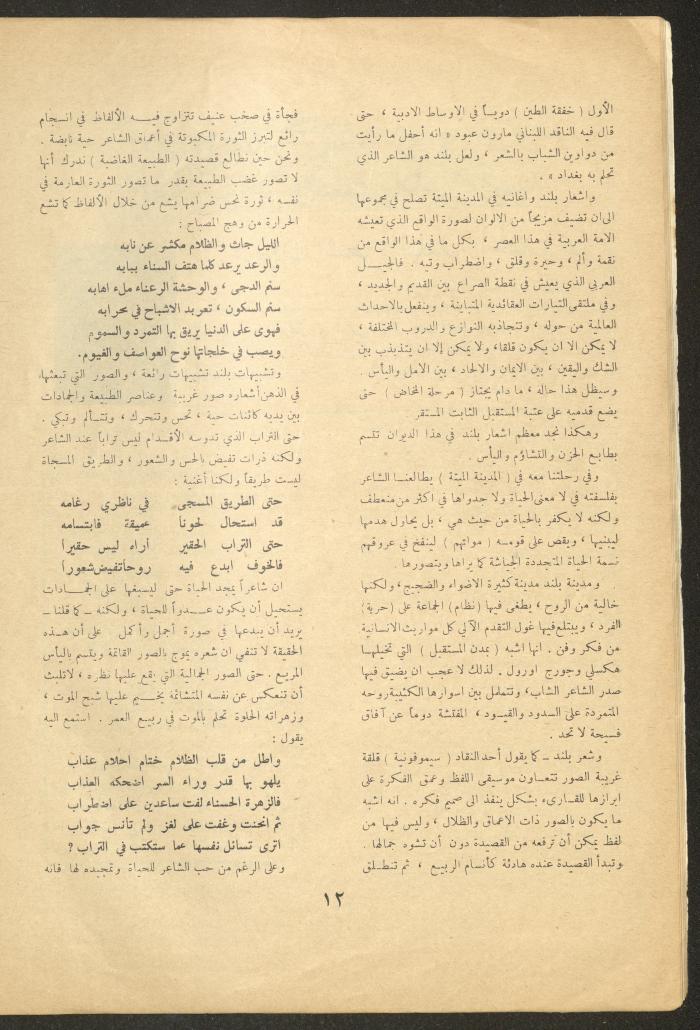 الأول ( خفقة الطين ) دوياً في الاوساط الادبية ، حتى
قال فيه الناقد اللبناني مارون عبود « انه أحفل ما رأيت
من دواوين الشباب بالشعر ، ولعل بلند هو الشاعر الذي
تحلم به بغداد » .
واشعار بلند واغانيه في المدينة الميتة تصلح في مجموعها
الى ان تضيف مزيجاً من الالوان لصورة الواقع الذي تعيشه
الامة العربية في هذا العصر ، بكل ما في هذا الواقع من
نقمة وألم ، وحيرة وقلق ، واضطراب وتيه . فالجيـــل
العربي الذي يعيش في نقطة الصراع بين القديم والجديد ،
وفي ملتقى التيارات العقائدية المتباينة ، وينفعل بالاحداث
العالمية من حوله ، وتتجاذبه النوازع والدروب المختلفة ،
لا يمكن الا ان يكون قلقا، ولا يمكن إلا ان يتذبذب بين
الشك واليقين ، بين الايمان والالحاد ، بين الأمل واليأس .
وسيظل هذا حاله ، ما دام يجتاز ( مرحلة المخاض ) حتى
يضع قدميه على عتبة المستقبل الثابت المستقر
وهكذا نجد معظم اشعار بلند في هذا الديوان تتسم
بطابع الحزن والتشاؤم واليأس .
وفي رحلتنا معه في ( المدينة الميتة ) يطالعنـا الشاعر
بفلسفته في لا معنى الحياة ولا جدواها في اكثر من منعطف
ولكنه لا يكفر بالحياة من حيث هي ، بل يحاول هدمها
ليبنيها ، ويقص على قومـه ( مواتهم ) لينفخ في عروقهم
نسمة الحياة المتجددة الجياشة كما يراها ويتصورها .
ومدينة بلند مدينة كثيرة الاضواء والضجيج، ولكنها
خالية من الروح ، يطغى فيها (نظام) الجماعة على (حرية)
الفرد ، ويبتلع فيها غول التقدم الآلي كل مواريث الانسانية
من فكر وفن . انها اشبه ( بمدن المستقبل ) التي تخيلهـا
هكسلي وجورج اورول . لذلك لا عجب ان يضيق فيها
صدر الشاعر الشاب، وتتململ بين اسوارها الكئيبة روحه
المتمردة على السدود والقيـود ، المفتشة دوماً عن آفاق
فسيحة لا تحد .
وشعر بلند ـ كما يقول أحد النقاد ( سيمفونية ) قلقة
غريبة الصور تتعـاون موسيقى اللفظ وعمق الفكرة على
ابرازها للقـارىء بشكل ينفذ الى صميم فكره . انه اشبه
ما يكون بالصور ذات الاعماق والظلال ، وليس فيها من
لفظ يمكن أن ترفعه من القصيدة دون أن تشوه جمالها .
وتبدأ القصيدة عنده هادئة كأنسام الربيـع ، ثم تنطـلق
فجأة في صخب عنيف تتزاوج فيــه الألفاظ في انسجام
رائع لتبرز الثورة المكبوتة في أعماق الشاعر حية نابضة .
ونحن حين نطالع قصيدته ( الطبيعة الغاضبة ) ندرك أنها
لا تصور غضب الطبيعة بقدر ما تصور الثورة العارمة في
نفسه ، ثورة نحس ضرامها يشع من خلال الألفاظ كما تشع
الحرارة من وهج المصباح :
الليل جاث والظلام مكشر عن نابه
والرعد يرعد كلما هتف السناء ببابه
سئم الدجى ، والوحشة الرعناء ملء اهابه
سئم السكون ، تعربد الاشباح في محرابه
فهوى على الدنيا يريق بها التمرد والسموم
ويصب في خلجاتها نوح العواصف والغيوم.
وتشبيهات بلند تشبيهات رائعة ، والصور التي تبعثها
في الذهن أشعاره صور غريبة وعناصر الطبيعة والجمادات
بين يديه كائنات حية ، تحس وتتحرك ، وتتـألم وتبكي .
حتى التراب الذي تدوسه الأقـدام ليس تراباً عند الشاعر
ولكنه ذرات تفيض بالحس والشعور ، والطريق المسجاة
ليست طريقاً ولكنا أغنية :
حتى الطريق المسجى في ناظري رغامه
قد استحال لحوناً عميقة فابتسامه
حتى التراب الحقير أراه ليس حقيرا
فالخوف ابدع فيه روحاً تفيض شعورا
ان شاعراً يمجد الحياة حتى ليسبغها على الجمـادات
يستحيل أن يكون عـدواً للحياة ، ولكنه ـ كما قلنا ـ
يريد أن يبدعها في صورة أجمل وأكمل . على أن هـذه
الحقيقة لا تنفي ان شعره يموج بالصور القاتمة ويتسم باليأس
المريع . حتى الصور الجمالية التي يقع عليها نظره ، لا تلبث
أن تنعكس عن نفسه المتشائمة يخـيم عليها شبح الموت ،
وزهراته الحلوة تحلم بالموت في ربيع العمر . استمع اليه
يقول :
واطل من قلب الظلام ختام احلام عذاب
يلهو بها قدر وراء السر اضحكه العذاب
فالزهرة الحسناء لفت ساعدين على اضطراب
ثم انحنت وغفت على لغز ولم تأنس جواب
اترى تسائل نفسها عما ستكتب في التراب ؟
وعلى الرغم من حب الشاعر للحياة وتمجيده لها فانه
١٢